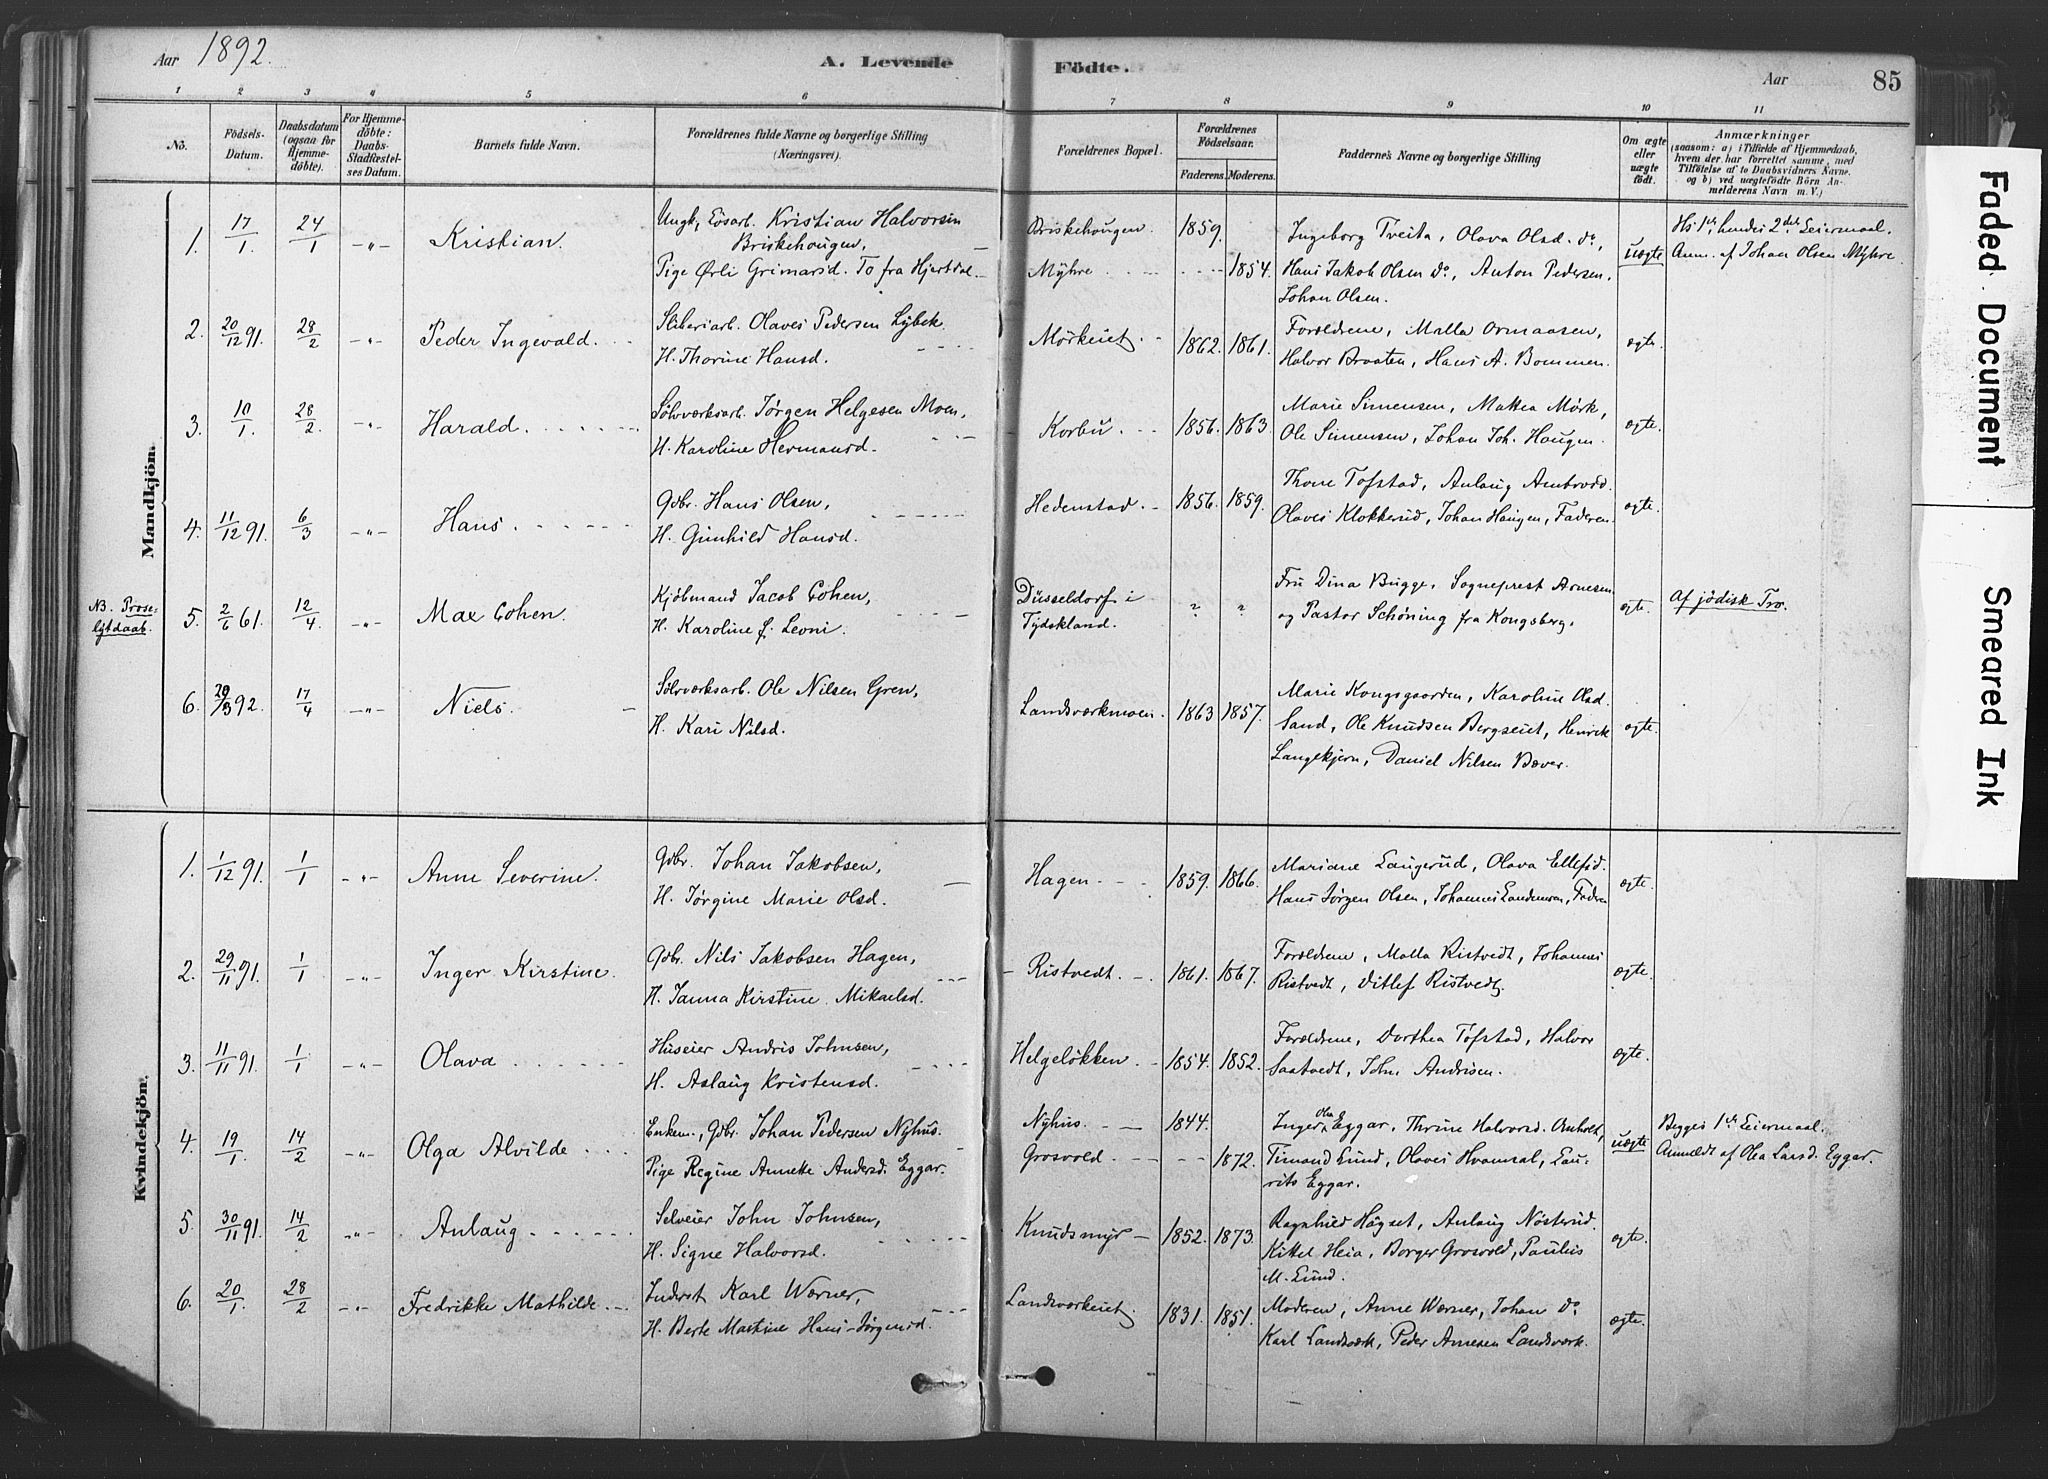 Aar 1892.
A. Levende Födte.
Aar
85
1 2 3 4 5 6 7 8 9 10 11
No.
Födsels-Datum.
Daabsdatum (ogsaa for Hjemmedöbte).
For Hjemmedöbte: Daabs-Stadfæstelses Datum.
Barnets fulde Navn.
Forældrenes fulde Navne og borgerlige Stilling
(Næringsvei).
Forældrenes Bopæl.
Forældrenes Födselsaar.
Faderens. Moderens.
Faddernes Navne og borgerlige Stilling
Om ægte eller uægte födt.
Anmærkninger
(saasom: a) i Tilfælde af Hjemmedaab,
hvem der har forrettet samme, med
Tilföielse af to Daabsvidners Navne,
og b) ved uægtefödte Börn An-
melderens Navn m. V.)
Mandkjön.
1. 17/1. 24/1 -"- Kristian.
Ungk, Løsarb. Kristian Halvorsen
Briskehougen,
Pige Ørli Grimarsd. To fra Hjertdal
Briskehougen 1859.
Myhre 1854.
Ingeborg Tveita, Olava Olsd. do,
Hans Jakob Olsen do, Anton Pedersen,
Johan Olsen.
uægte
Hs 1ste, hendes 2det Leiermaal.
Anm. af Johan Olsen Myhre.
2. 20/12 91. 28/2 -"- Peder Ingevald.
Sliberiarb. Olaves Pedersen Lybek
H. Thorine Hansd.
Mørkeiet 1862. 1861.
Forældrene, Malla Ormaasen,
Halvor Braaten, Hans A. Bommen.
ægte.
3. 10/1. 28/2. -"- Harald.
Sølvværksarb. Jørgen Helgesen Moen,
H. Karoline Hermansd.
Korbu 1856. 1863.
Marie Simensen, Mattea Mørk,
Ole Simensen, Johan Joh. Haugen.
ægte.
4. 11/12 91. 6/3 -"- Hans.
Gdbr. Hans Olsen,
H. Gunhild Hansd.
Hedenstad 1856. 1859.
Thone Tofstad, Anlaug
Olaves Klokkerud, Johan Haugen, Faderen
ægte.
NB. Prose-
lytdaab.
5. 2/6 61. 12/4 -"- Max Cohen.
Kjøbmand Jacob Cohen,
H. Karoline f. Leoni.
Düsseldorf i
Tydskland.
" "
Fru Dina Bugge, Sogneprest Arnesen
og Pastor Schøning fra Kongsberg.
ægte.
Af jödisk Tro.
6. 29/3 92. 17/4 -"- Niels.
Sølvværksarb. Ole Nilsen Gren,
H. Kari Nilsd.
Landsværkmoen 1863 1857.
Marie Kongsgaarden, Karoline Olsd
Sand, Ole Knudsen Bergseiet, Henrik
Langekjern, Daniel Nilsen Bæver.
ægte.
Kvindekjön.
1. 1/12 91. 1/1 -"- Anne Severine.
Gdbr. Johan Jakobsen,
H. Jørgine Marie Olsd.
Hagen 1859. 1866.
Mariane Laugerud, Olava Ellefsd.
Hans Jørgen Olsen, Johannes Landemoen, Faderen
ægte.
2. 29/11 91. 1/1 -"- Inger Kirstine.
Gdbr. Nils Jakobsen Hagen,
H. Janna Kirstine Mikaelsd.
Ristvedt 1861. 1867.
Forældrene, Malla Ristvedt, Johannes
Ristvedt, Ditlef Ristvedt.
ægte.
3. 11/11 91. 1/1 -"- Olava
Huseier Andris Johnsen,
H. Aslaug Kristensd.
Helgeløkken 1854. 1852.
Forældrene, Dorthea Tofstad, Halvor
Saatvedt, John Andrisen.
ægte.
4. 19/1. 14/2 -"- Olga Alvilde
Enkem., Gdbr. Johan Pedersen Nyhus.
Pige Regine Annette Andersd. Eggar.
Nyhus 1844.
Grosvold 1872.
Inger Olea Eggar, Thrine Halvorsd. Anholt,
Timand Lund, Olaves Hvamsal, Lau-
rits Eggar.
uægte
Begges 1ste Leiermaal.
Anmeldt af Olea Larsd. Eggar.
5. 30/11 91. 14/2 -"- Anlaug
Selveier John Johnsen,
H. Signe Halvorsd.
Knudsmyr 1852. 1873.
Ragnhild Høgset, Anlaug Nösterud.
Kittel Heia, Borger Grosvold, Paulus
M. Lund.
ægte.
6. 20/1. 28/2 -"- Fredrikke Mathilde
Inderst Karl Werner,
H. Berte Martine Hans-Jørgensd.
Landsværkeiet. 1831. 1851.
Moderen, Anne Werner, Johan do
Karl Landsværk, Peder Arnesen Landsværk.
ægte.
Faded Document
Smeared Ink